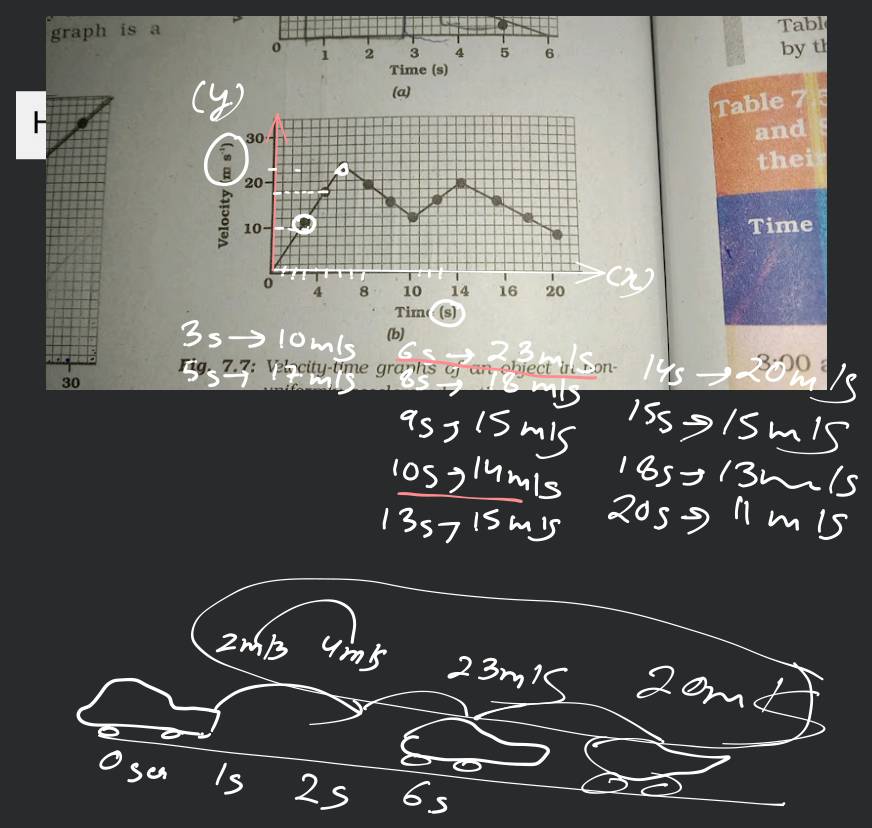 graph is a
0 1 2 3 4 5 6
Time (s)
(a)
Table
by th
H
(y)
Table 7.5
and S
their
Time
Velocity (m s⁻¹)
30
20
10
0 4 8 10 14 16 20
(x)
Time (s)
(b)
Fig. 7.7: Velocity-time graphs of an object in non-
30
3:00
3s → 10m/s
5s → 17m/s
6s → 23m/s
8s → 18m/s
9s → 15m/s
10s → 14m/s
13s → 15m/s
14s → 20m/s
15s → 15m/s
18s → 13m/s
20s → 11m/s
2m/s 4m/s
23m/s
20m
1s 2s 6s